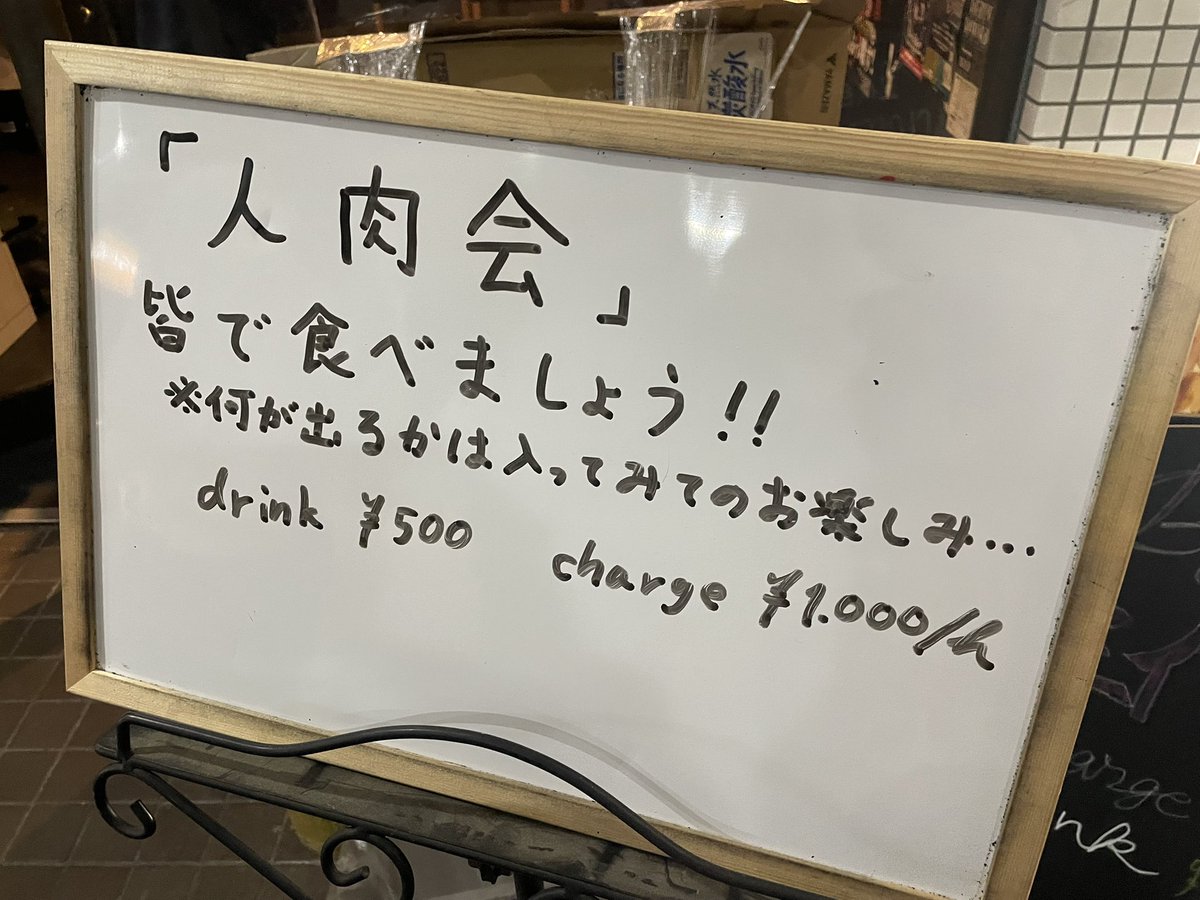 「人肉会」
皆で食べましょう!!
※何が出るかは入ってみてのお楽しみ…
drink ¥500
charge ¥1.000/h
天然水
炭酸水
arge
nk